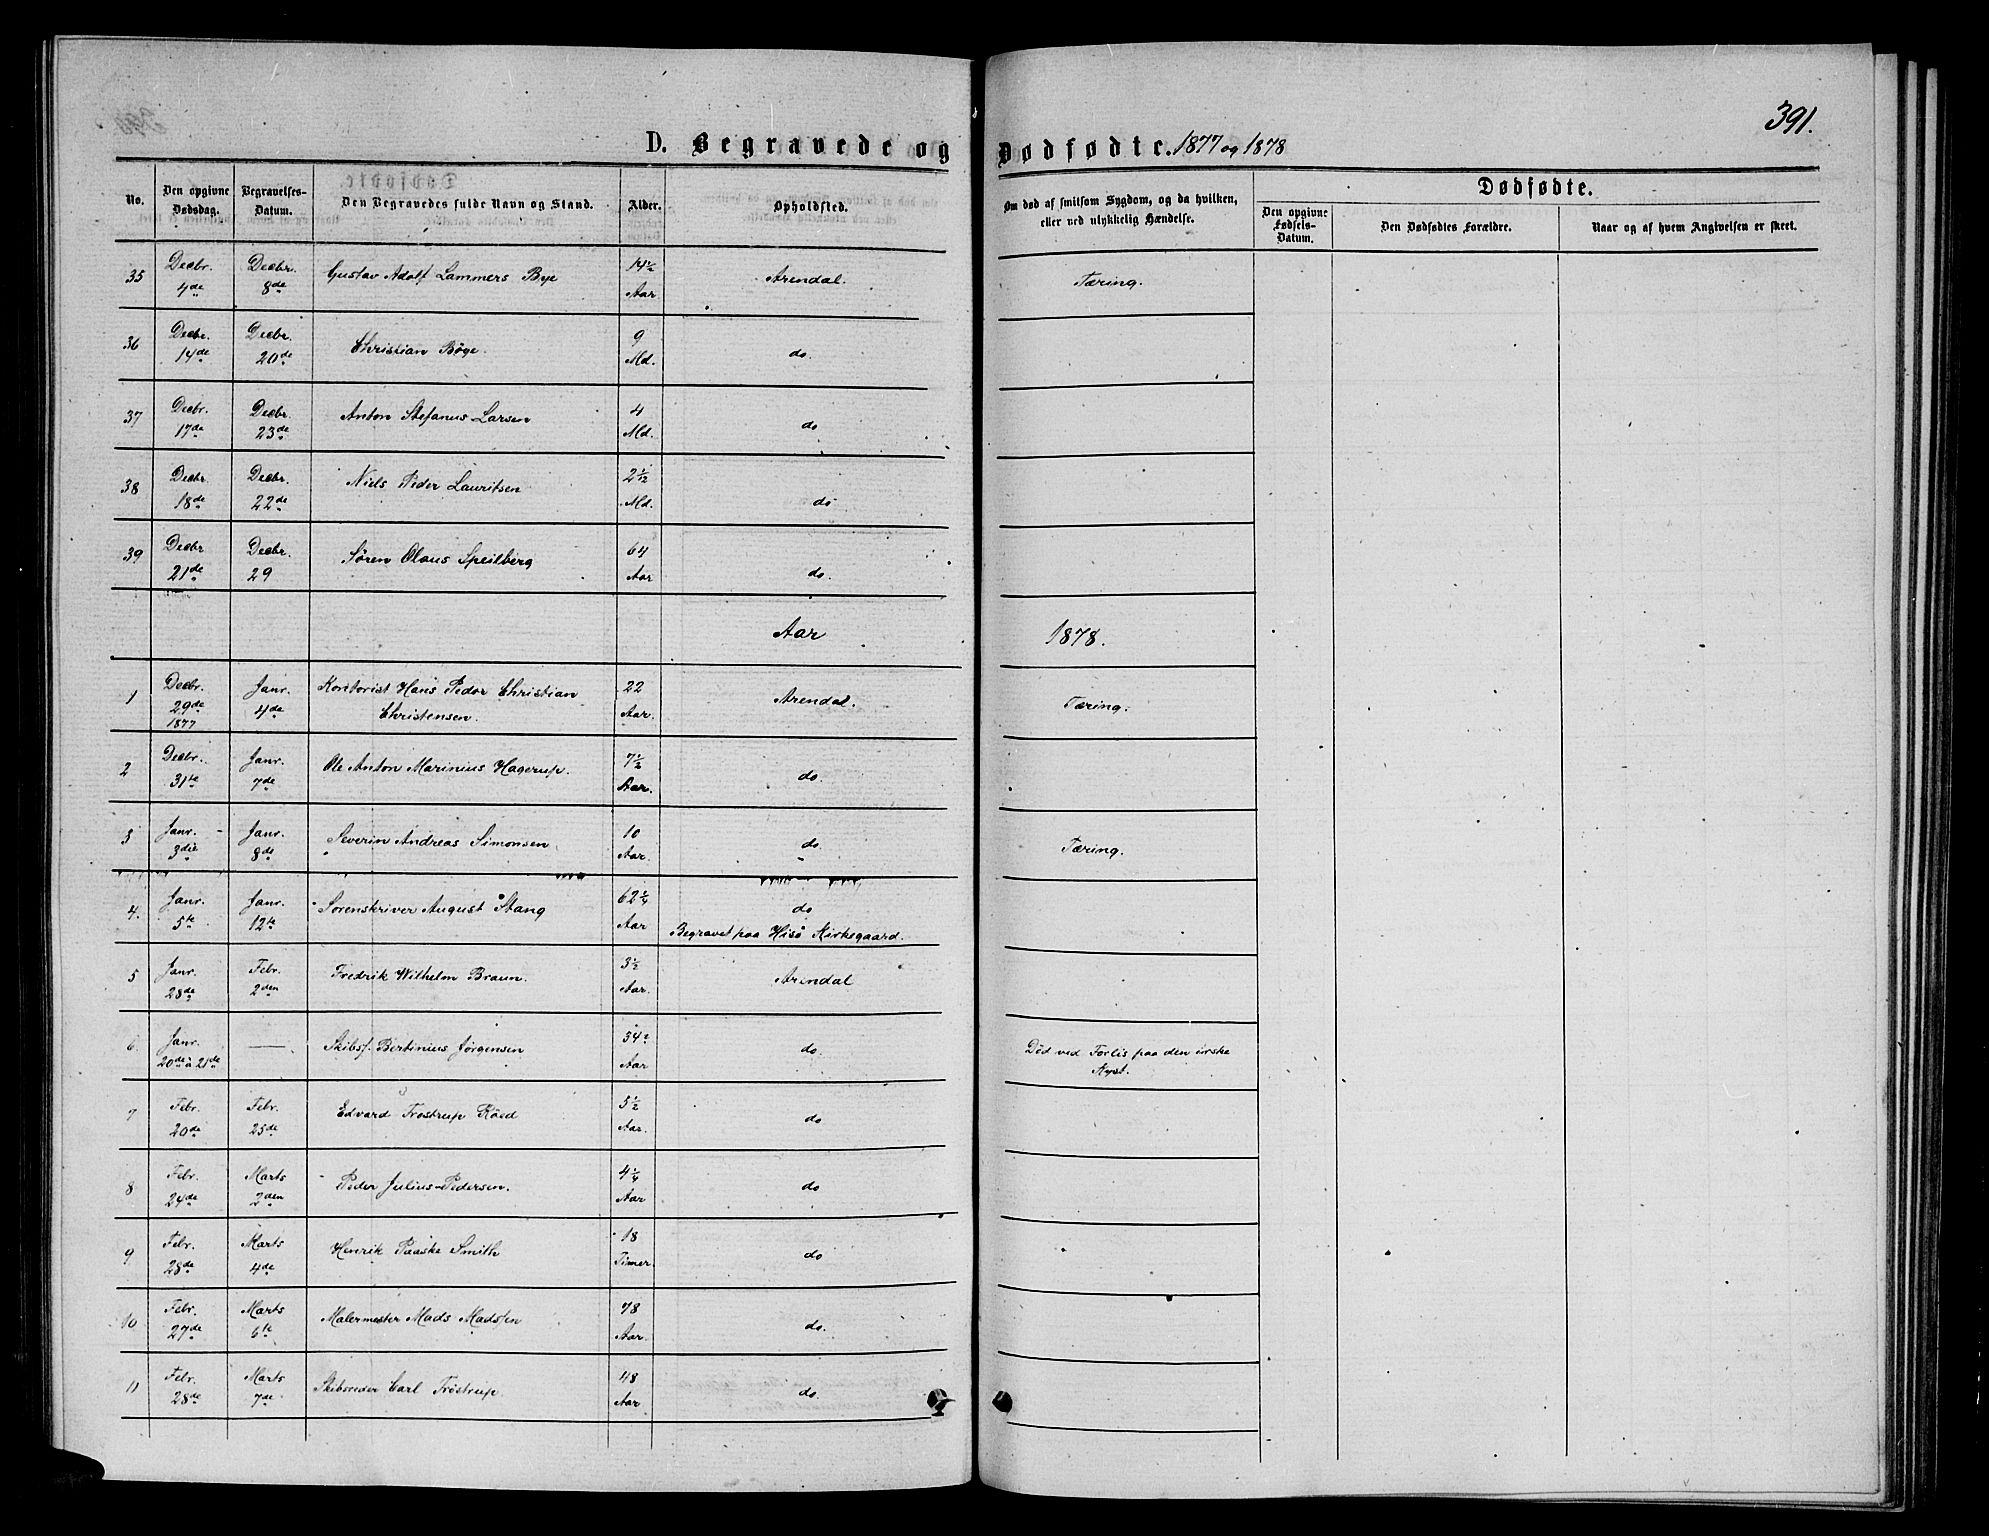 391.
D. Begravede og Dødfødte. 1877 og 1878
No. Den opgivne Dødsdag. Begravelses-Datum. Den Begravedes fulde Navn og Stand. Alder. Opholdsted. Om død af smitsom Sygdom, og da hvilken, eller ved ulykkelig Hændelse. Dødfødte.
Den opgivne Fødsels-Datum. Den Dødfødtes Forældre. Naar og af hvem Angivelsen er skeet.
35 Decbr. 4de Decbr. 8de Gustav Adolf Lammers Bye 14½ Aar Arendal. Tæring.
36 Decbr. 14de Decbr. 20de Christian Bøge. 9 Md. do.
37 Decbr. 17de Decbr. 23de Anton Stefanus Larsen 4 Md. do
38 Decbr. 18de Decbr. 22de Niels Peder Lauritsen 2½ Md. do
39 Decbr 21de Decbr. 29 Søren Olaus Speilberg 64 Aar do.
Aar 1878.
1 Decbr. 29de 1877 Janr. 4de Kontorist Hans Peder Christian Christensen. 22 Aar. Arendal. Tæring.
2 Decbr. 31te Janr. 7de Ole Anton Marinius Hagerup. 7½ Aar. do.
3 Janr. 3die Janr. 8de Severin Andreas Simonsen 10 Aar. do. Tæring.
4. Janr. 5te Janr. 12te Sorenskriver August Stang 62¼ Aar do
Begravet paa Hisø Kirkegaard.
5 Janr. 28de Febr. 2den Fredrik Wilhelm Braun. 3½ Aar. Arendal
6 Janr. 20de a 21de — Skibsf. Bertinius Jørgensen Aar do. Død ved Forlis paa den irske Kyst.
7 Febr. 20de Febr. 25de Edvard Trostrup Röed 5½ Aar. do
8 Febr. 24de Marts 2den Peder Julius Pedersen. 4¼ Aar do
9 Febr. 28de Marts 4de Henrik Paaske Smith 18 Timer. do
10 Febr. 27de Marts 6te Malermester Mads Madssen 78 Aar. do.
11 Febr. 28de Marts 7de Skibsreder Carl Trøstrup. 48 Aar. do.